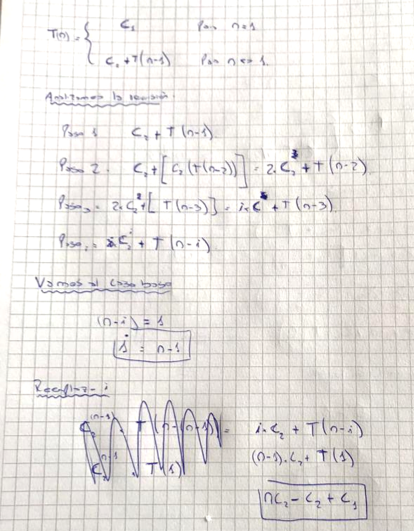 T(n) = { C₁ Para n=1
C₂ + T(n-1) Para n<>1.
Analizamos la recursión.
Paso 1 C₂ + T(n-1)
Paso 2. C₂ + [C₂(T(n-2))] = 2.C₂ + T(n-2)
Paso 3 = 2.C₂ + [ T(n-3)] = i.C + T(n-3)
Paso i = i C₂ + T(n-i)
Vamos al Caso base
(n-i) = 1
i = n-1
Reemplazo i
i.C₂ + T(n-i)
(n-1).C₂ + T(1)
nC₂ - C₂ + C₁